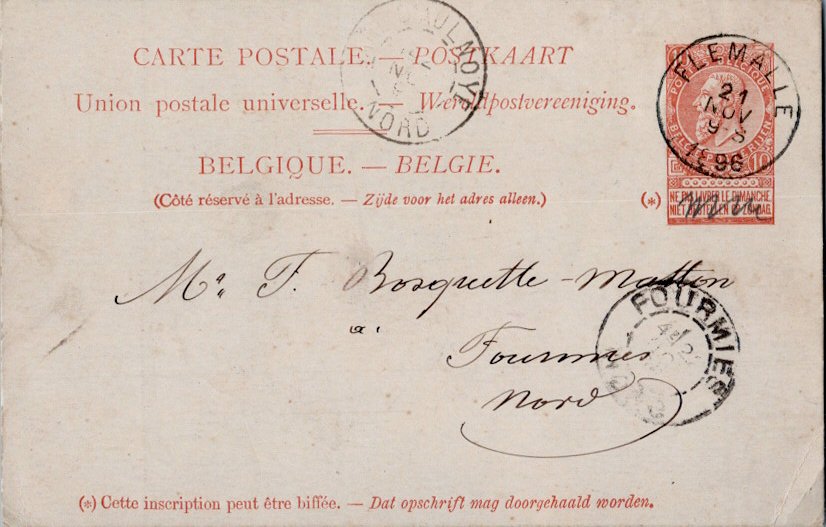 CARTE POSTALE. — POSTKAART
Union postale universelle. — Wereldpostvereeniging.
BELGIQUE. — BELGIE.
(Côté réservé à l'adresse. — Zijde voor het adres alleen.)
(*)
NE PAS LIVRER LE DIMANCHE
NIET BESTELLEN OP ZONDAG
FLEMALLE
21
NOV
9-S
1896
10
AULNOYE
NORD
Mr. F. Bosquette-Matton
à
Fourmies
Nord
FOURMIES
(*) Cette inscription peut être biffée. — Dat opschrift mag doorgehaald worden.